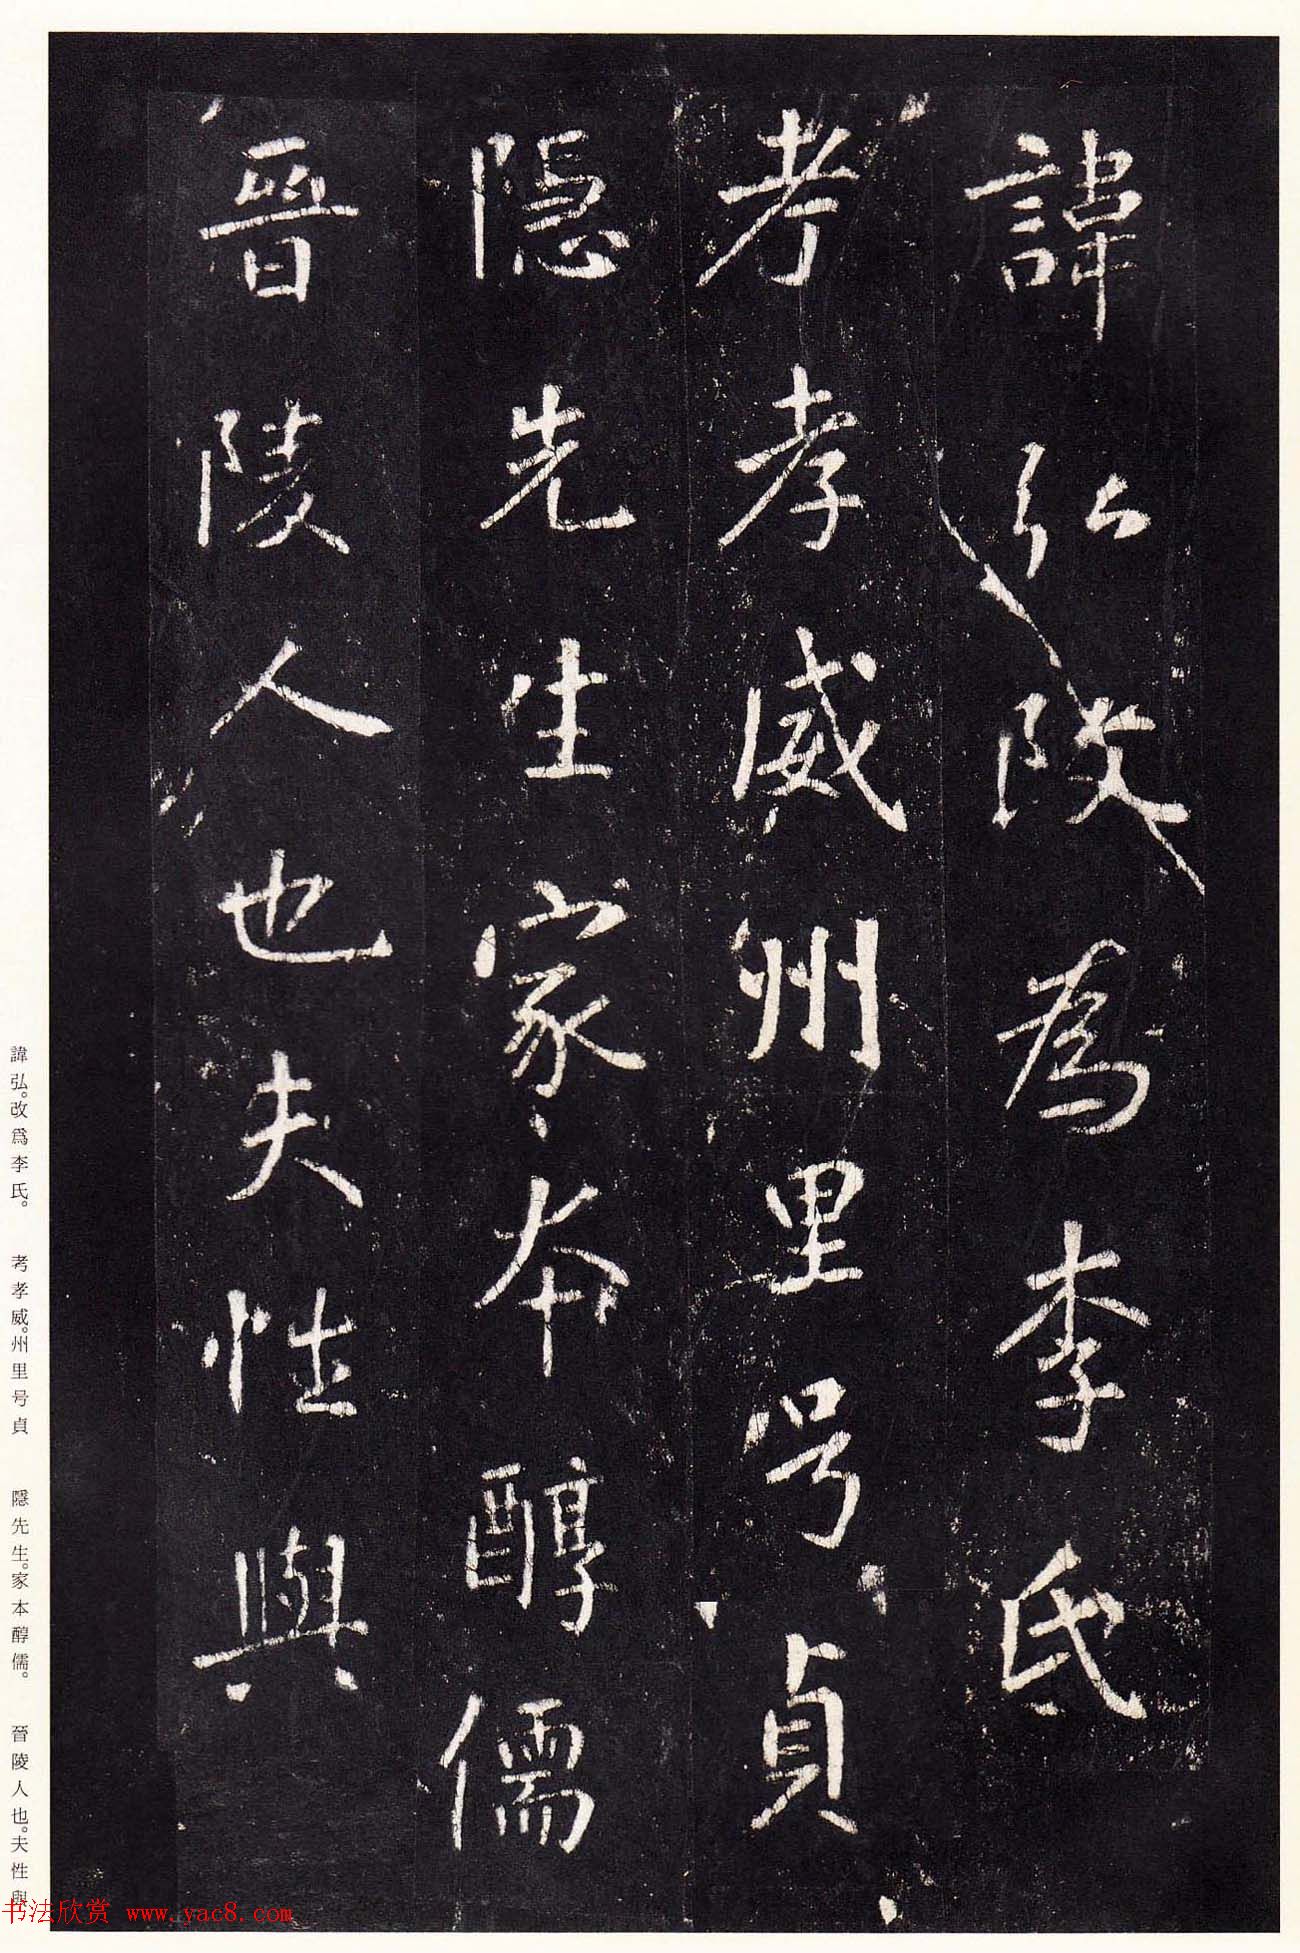 諱弘改為李氏
考孝威州里号貞
隱先生家本醇儒
晉陵人也夫性與
諱弘。改爲李氏。 考孝威。州里号貞 隱先生。家本醇儒。 晉陵人也。夫性與
书法欣赏 www.yac8.com